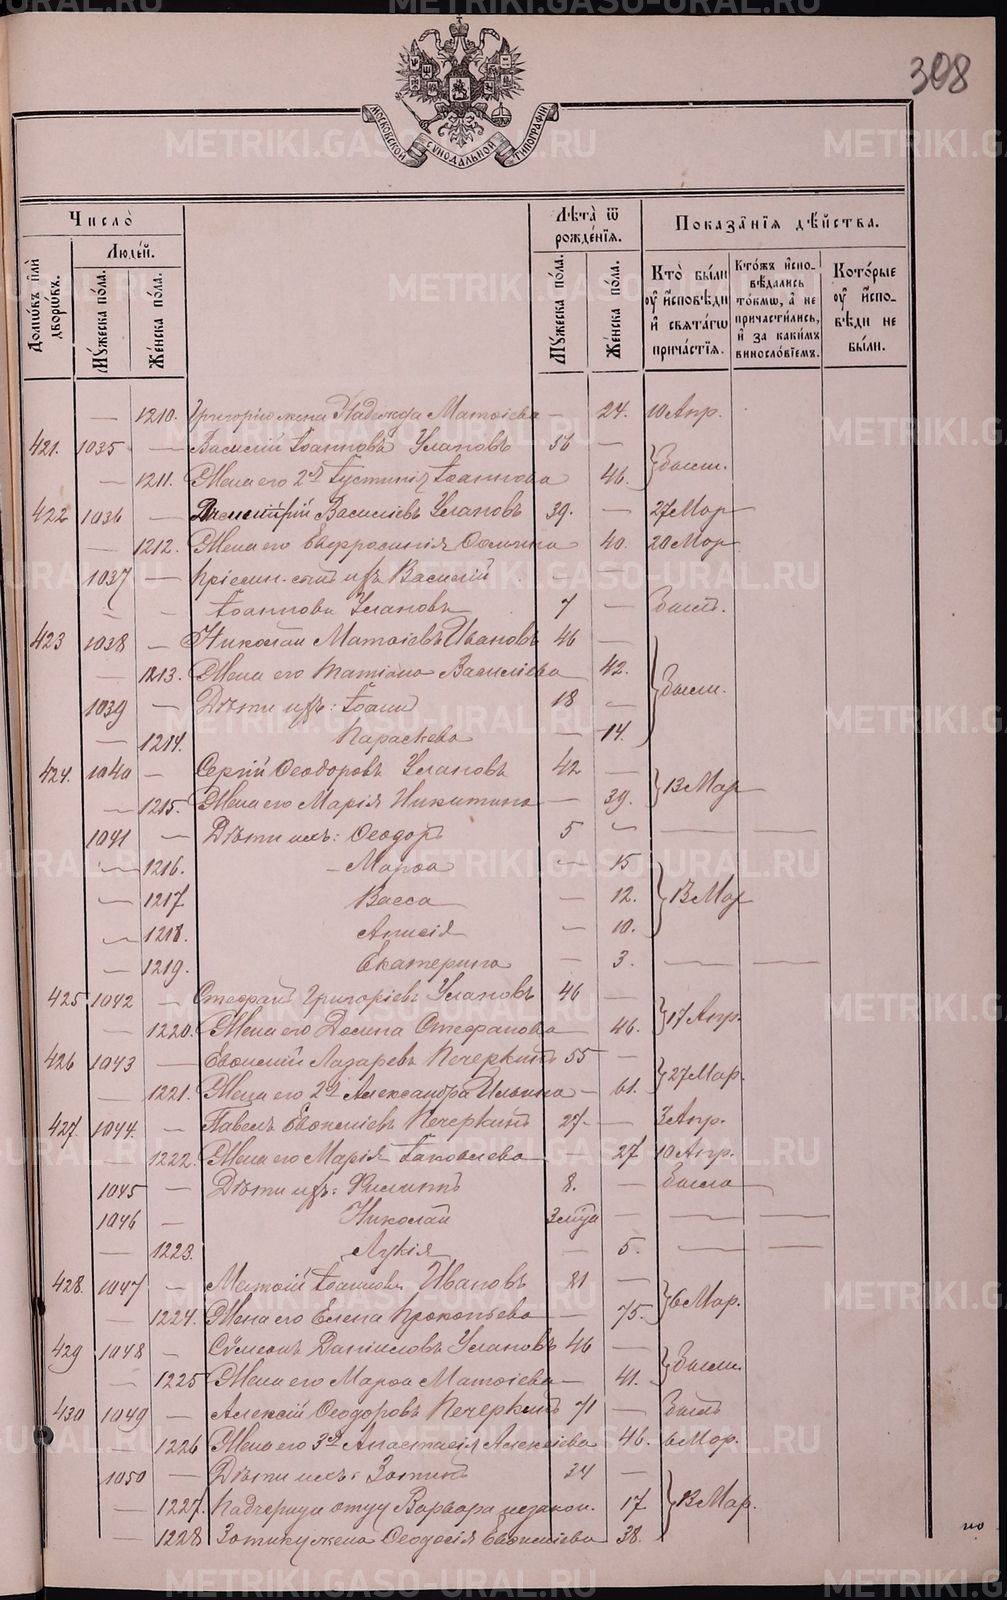 308
МОСКОВСКОЙ СУНОДАЛЬНОЙ ТИПОГРАФИИ
Число̀
Домѡ́въ и҆лѝ дворѡ́въ.
Люде́й.
Мꙋ́жеска по́ла.
Же́нска по́ла.
Лѣ́та ѿ рожде́нїѧ.
Мꙋ́жеска по́ла.
Же́нска по́ла.
Показа̑нїѧ дѣ́йства.
Кто̀ бы́ли ᲂу҆ и҆́сповѣди и҆ свѧта́гѡ прича́стїѧ.
Кто́жъ и҆спо-вѣ́дались то́кмѡ, а҆ не причасти́лись, и҆ за каки́мъ виносло́вїемъ.
Кото́рые ᲂу҆ и҆́спо-вѣди не бы́ли.
— 1210. Григорію жена Надежда Матѳіева — 24. 10 Апр.
421. 1035 — Василій Іоанновъ Улановъ 56 —
— 1211. Жена его 2я Іустинія Іоаннова 46. были.
422 1036 — Димитрій Василіевъ Улановъ 39. — 27 Мар
— 1212. Жена его Евфросинія Ѳомина — 40. 20 Мар
1037 — Пріемн. сынъ ихъ Василій — —
Іоанновъ Улановъ 7 — былъ.
423 1038 — Николай Матѳіевъ Ивановъ 46 —
— 1213. Жена его Татіана Василіева 42. были.
1039 — Дѣти ихъ: Іоаннъ 18 —
— 1214. Параскева — 14.
424. 1040 — Сергій Ѳеодоровъ Улановъ 42 —
— 1215. Жена его Марія Никитина — 39. 13 Мар
1041 — Дѣти ихъ: Ѳеодоръ 5 — — —
— 1216. Марѳа — 15
— 1217 Васса — 12. 13 Мар
— 1218. Анисія — 10.
— 1219. Екатерина — 3. — —
425 1042 — Стефанъ Григоріевъ Улановъ 46 —
— 1220. Жена его Домна Стефанова — 46. 17 Апр.
426 1043 — Евѳимій Лазаревъ Печеркинъ 55 —
— 1221. Жена его 2я Александра Ильина — 61. 27 Мар.
427. 1044. — Павелъ Евѳиміевъ Печеркинъ 27 — 3 Апр.
— 1222. Жена его Марія Іаковлева — 27 10 Апр.
1045 — Дѣти ихъ: Филиппъ 8. — была
1046 — Николай — — —
— 1223. Лукія — 5. — —
428. 1047 — Матѳій Іоанновъ Ивановъ 81 —
— 1224. Жена его Елена Прокопьева — 75. 6 Мар.
429 1048 — Сѵмеонъ Даніиловъ Улановъ 46 —
— 1225 Жена его Марѳа Матѳіева — 41. были.
430 1049 — Алексій Ѳеодоровъ Печеркинъ 71 — былъ
— 1226 Жена его 3я Анастасія Алексіева 46. 6 Мар.
1050 — Дѣти ихъ: Зотикъ 34 —
— 1227. Падчерица отцу Варвара незакон. 17 13 Мар.
— 1228 Зотику жена Ѳеодосія Евѳиміева 38.
METRIKI.GASO-URAL.RU